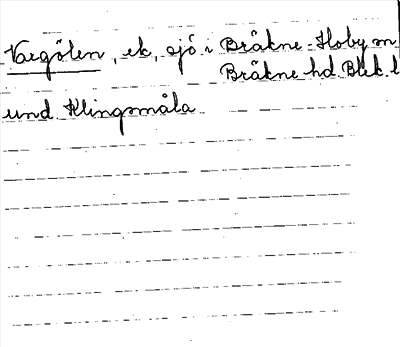 Vargölen, ek, sjö i Bräkne-Hoby sn
Bräkne hd Blek. l
und Klingsmåla